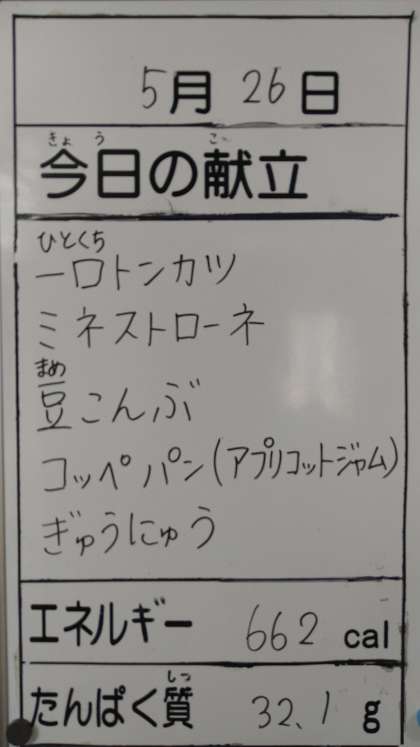 5月26日
きょう こん
今日の献立
ひとくち
一口トンカツ
ミネストローネ
まめ
豆こんぶ
コッペパン(アプリコットジャム)
ぎゅうにゅう
エネルギー 662 cal
しつ
たんぱく質 32.1 g